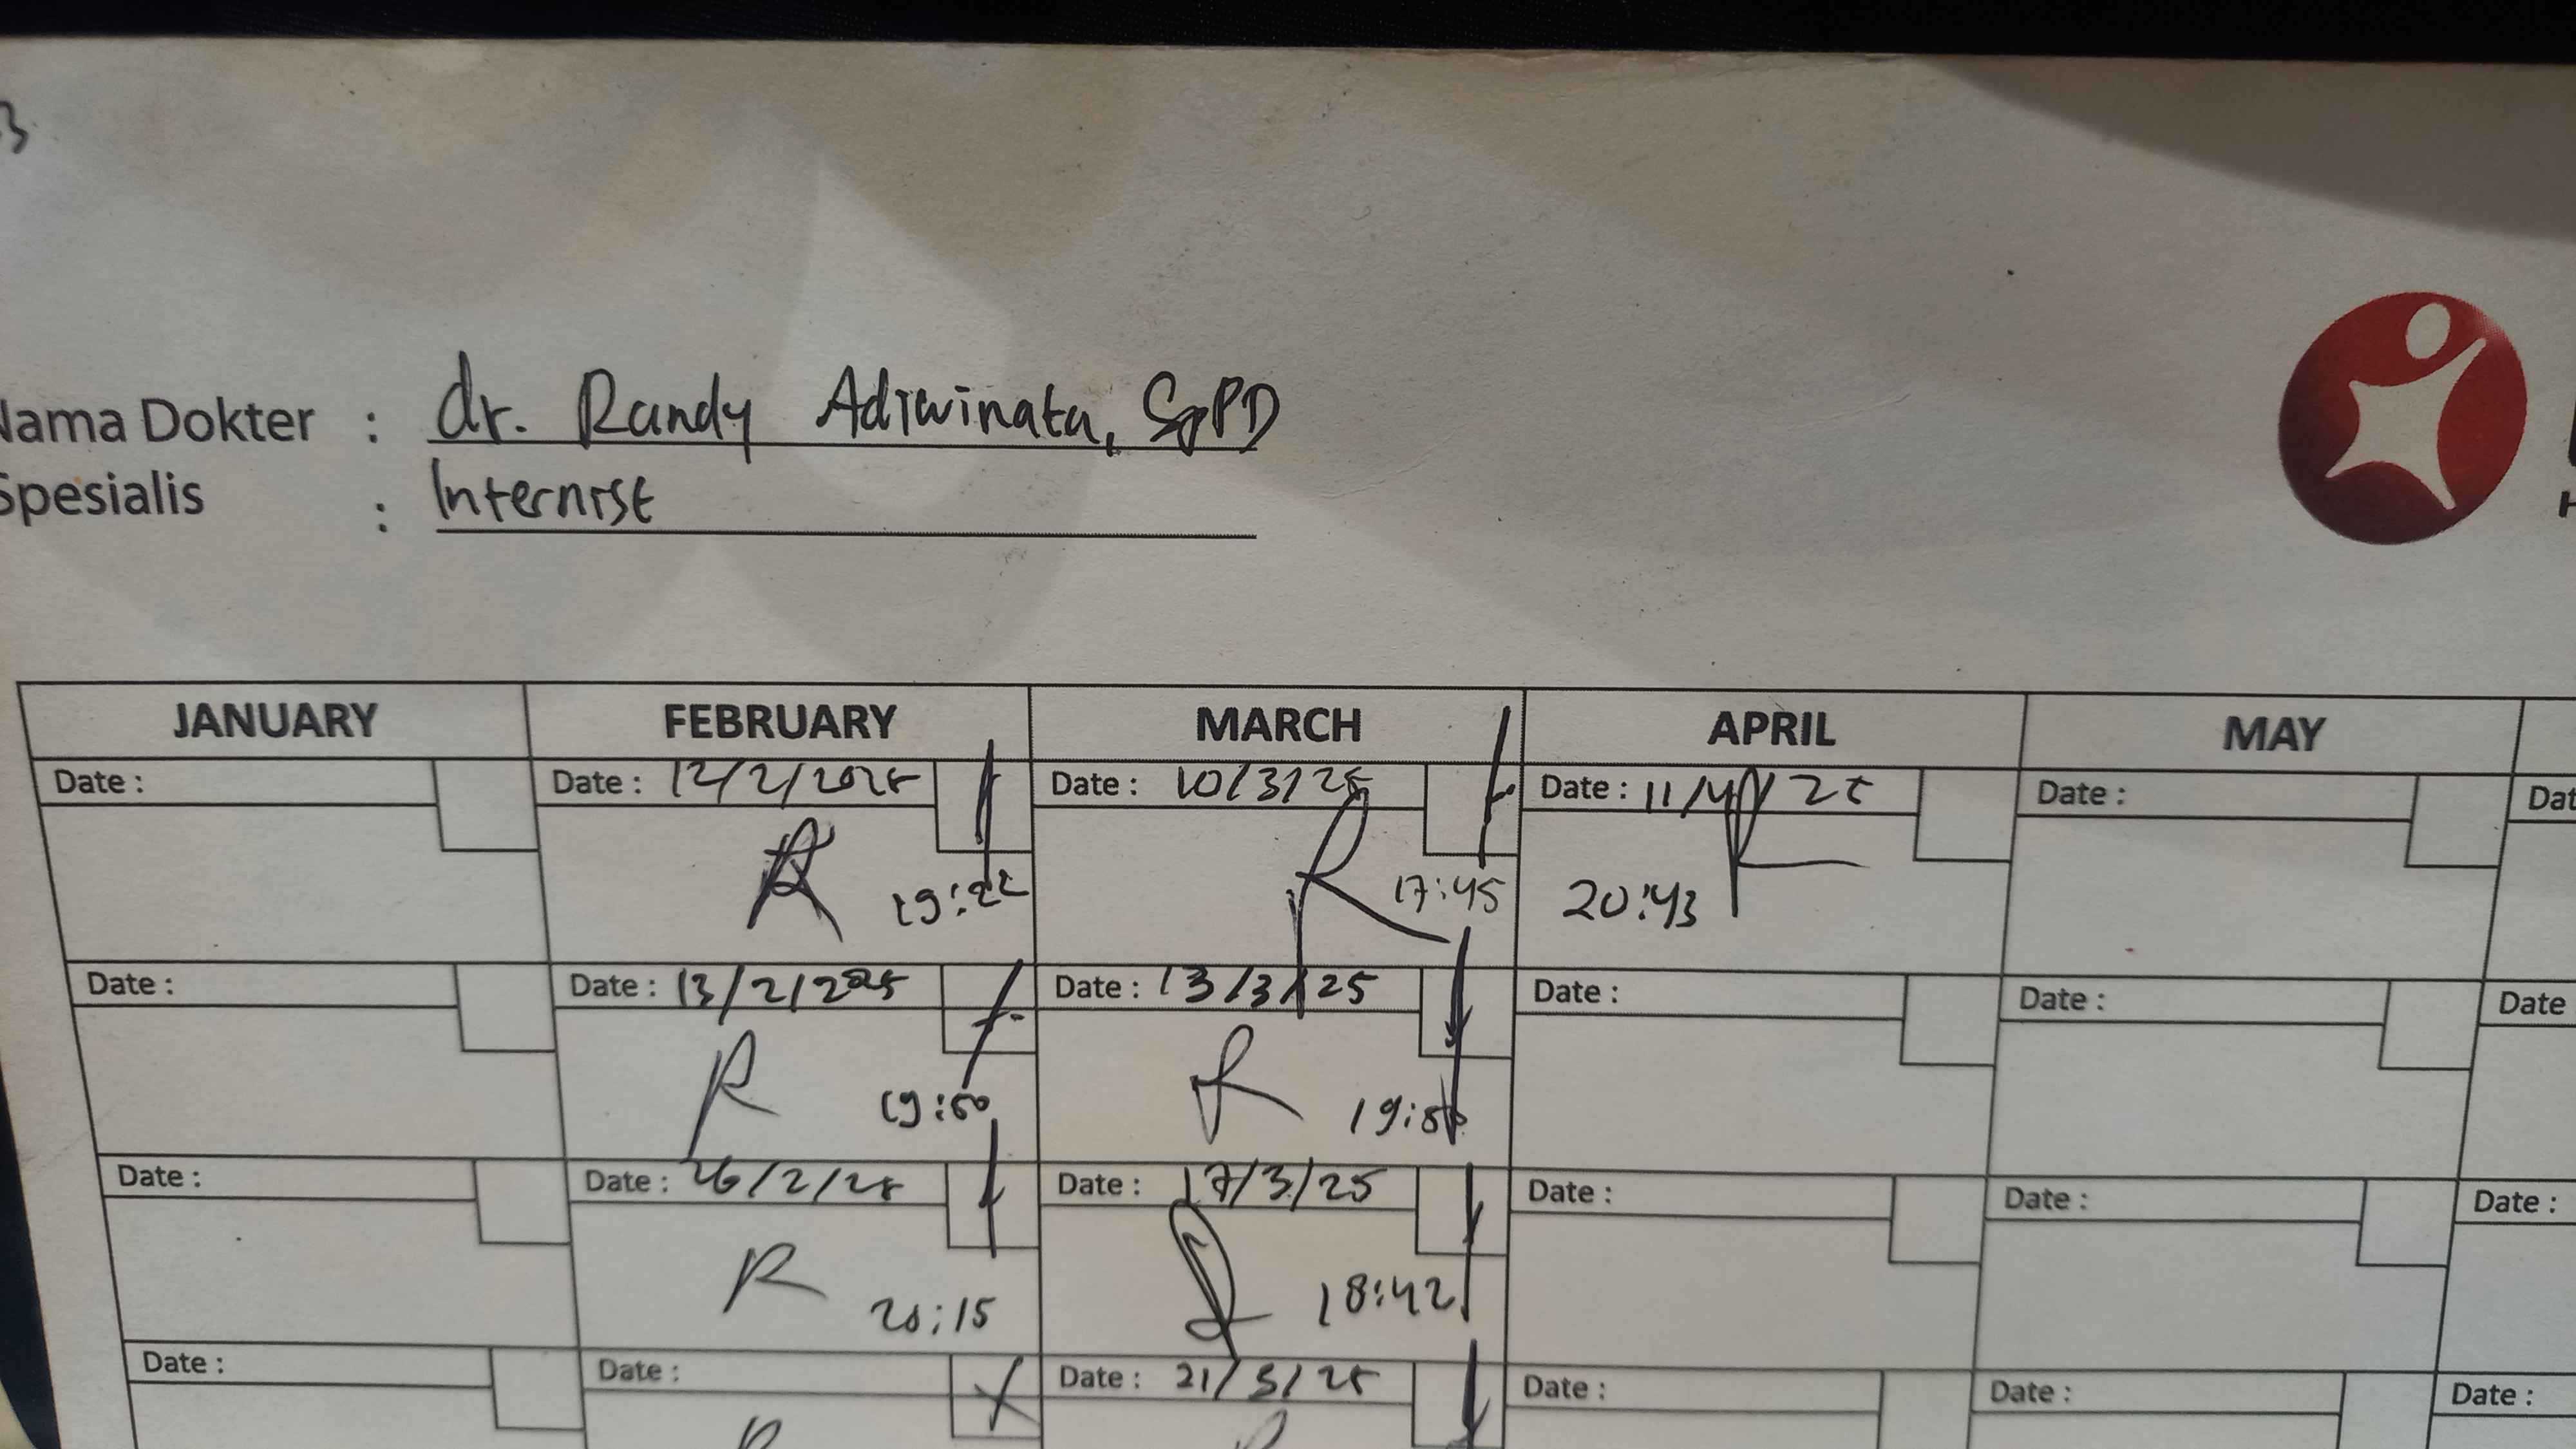 3
Nama Dokter : dr. Randy Adiwinata, SpPD
Spesialis : Internist
JANUARY FEBRUARY MARCH APRIL MAY
Date : Date : 12/2/2025 Date : 10/3/25 Date : 11/4/25 Date : Dat
19:22 17:45 20:43
Date : Date : 13/2/2025 Date : 13/3/25 Date : Date : Date
19:50
Date : Date : 26/2/25 Date : 17/3/25 Date : Date : Date :
R 20:15 18:42
Date : Date : Date : 21/3/25 Date : Date : Date :